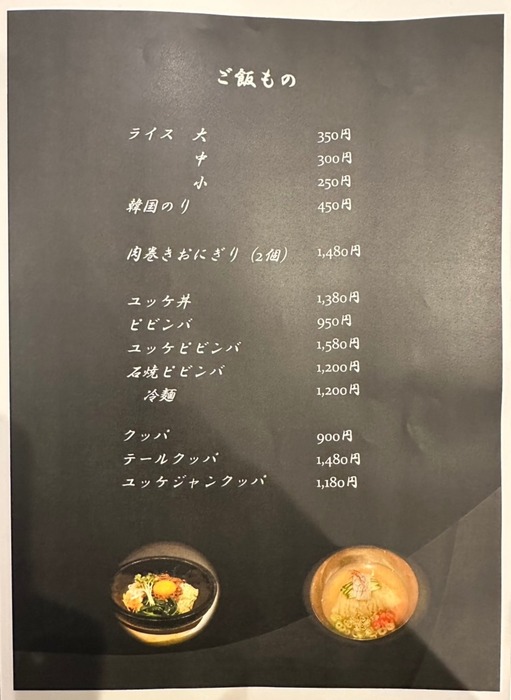 ご飯もの
ライス 大 350円
中 300円
小 250円
韓国のり 450円
肉巻きおにぎり (2個) 1,480円
ユッケ丼 1,380円
ビビンバ 950円
ユッケビビンバ 1,580円
石焼ビビンバ 1,200円
冷麺 1,200円
クッパ 900円
テールクッパ 1,480円
ユッケジャンクッパ 1,180円